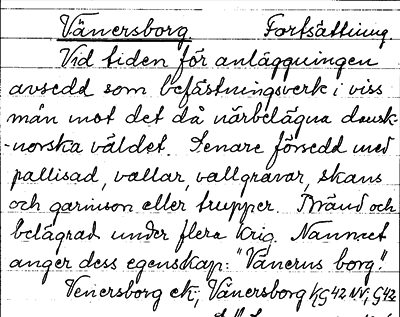 Vänersborg Fortsättning
Vid tiden för anläggningen
avsedd som befästningsverk i viss
mån mot det då närbelägna dansk-
-norska väldet. Senare försedd med
pallisad, vallar, vallgravar, skans
och garnison eller trupper. Bränd och
belägrad under flera krig. Namnet
anger dess egenskap: "Vänerns borg".
Venersborg ek; Vänersborg KG42 NV; G42